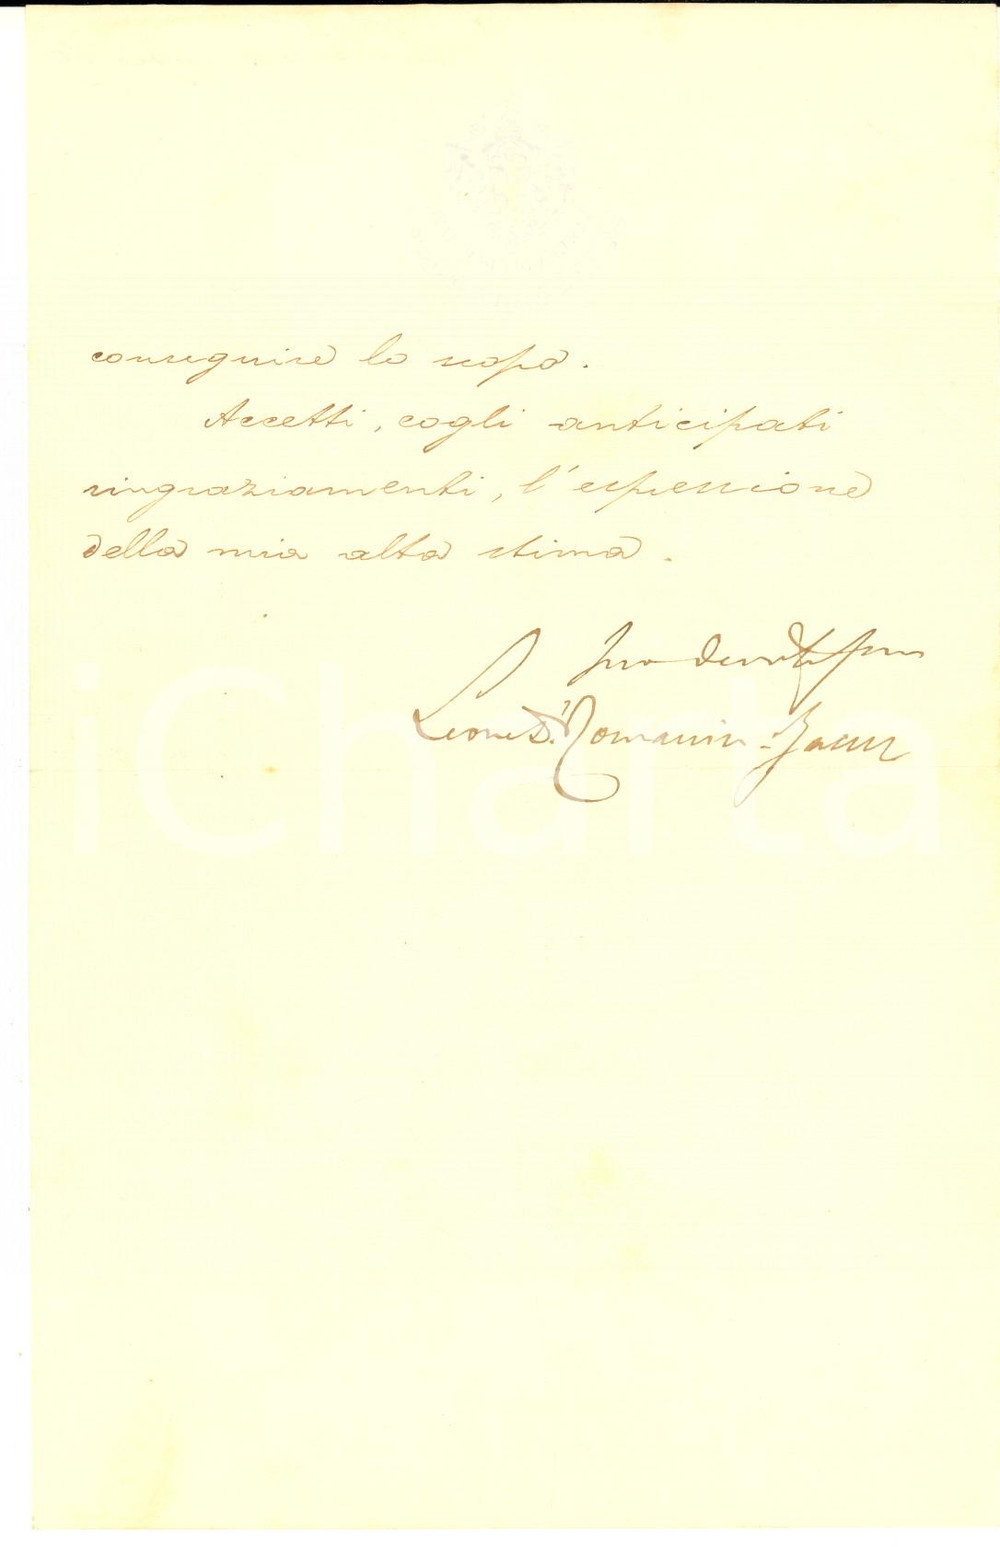 conseguire lo scopo.
Accetti, cogli anticipati
ringraziamenti, l'espressione
della mia alta stima.
Suo devotissimo
Leone Romanin-Jacur
iCharta